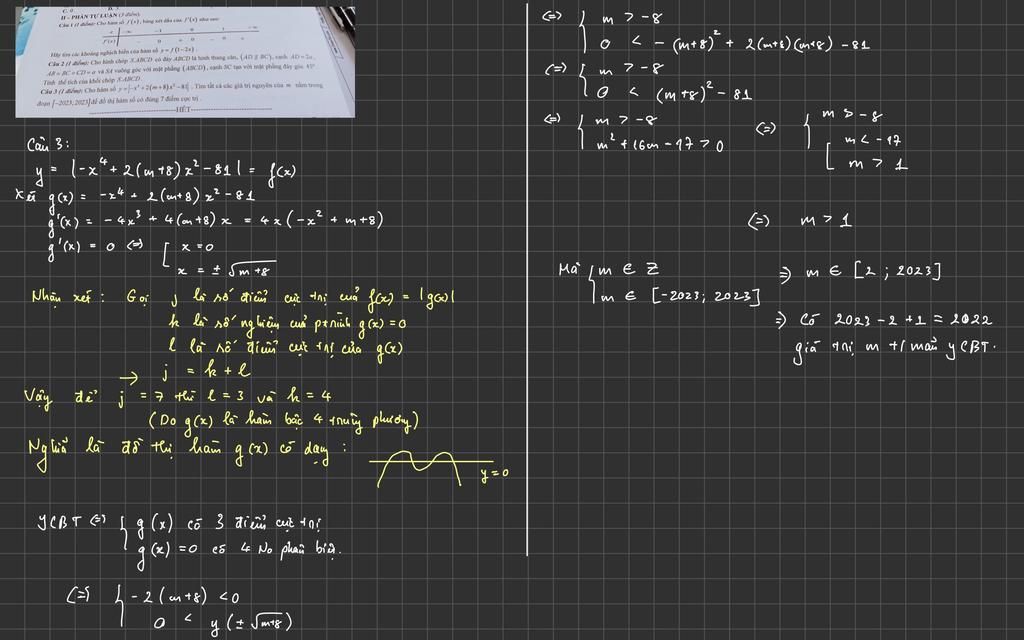 C. 0. D. 3.
II – PHẦN TỰ LUẬN (3 điểm).
Câu 1 (1 điểm): Cho hàm số f(x), bảng xét dấu của f'(x) như sau:
x -∞ -1 0 1 +∞
f'(x) - 0 + 0 + 0 -
Hãy tìm các khoảng nghịch biến của hàm số y = f(1-2x).
Câu 2 (1 điểm): Cho hình chóp S.ABCD có đáy ABCD là hình thang cân, (AD // BC), cạnh AD = 2a,
AB = BC = CD = a và SA vuông góc với mặt phẳng (ABCD), cạnh SC tạo với mặt phẳng đáy góc 45°.
Tính thể tích của khối chóp S.ABCD.
Câu 3 (1 điểm): Cho hàm số y = |-x⁴ + 2(m+8)x² - 81|. Tìm tất cả các giá trị nguyên của m nằm trong
đoạn [-2023; 2023] để đồ thị hàm số có đúng 7 điểm cực trị.
HẾT
Câu 3:
y = |-x⁴ + 2(m+8)x² - 81| = f(x)
Xét g(x) = -x⁴ + 2(m+8)x² - 81
g'(x) = -4x³ + 4(m+8)x = 4x(-x² + m+8)
g'(x) = 0 <=> [ x = 0
x = ± √(m+8)
Nhận xét: Gọi j là số điểm cực trị của f(x) = |g(x)|
k là số nghiệm của ptrình g(x) = 0
l là số điểm cực trị của g(x)
→ j = k + l
Vậy để j = 7 thì l = 3 và k = 4
(Do g(x) là hàm bậc 4 trùng phương)
Nghĩa là đồ thị hàm g(x) có dạng:
y = 0
YCBT <=> { g(x) có 3 điểm cực trị
g(x) = 0 có 4 No phân biệt.
<=> { -2(m+8) < 0
0 < y(± √(m+8))
<=> { m > -8
0 < -(m+8)² + 2(m+8)(m+8) - 81
<=> { m > -8
0 < (m+8)² - 81
<=> { m > -8
m² + 16m - 17 > 0
<=> { m > -8
[ m < -17
m > 1
<=> m > 1
Mà { m ∈ Z
m ∈ [-2023; 2023]
=> m ∈ [2; 2023]
=> Có 2023 - 2 + 1 = 2022
giá trị m t/mãn YCBT.